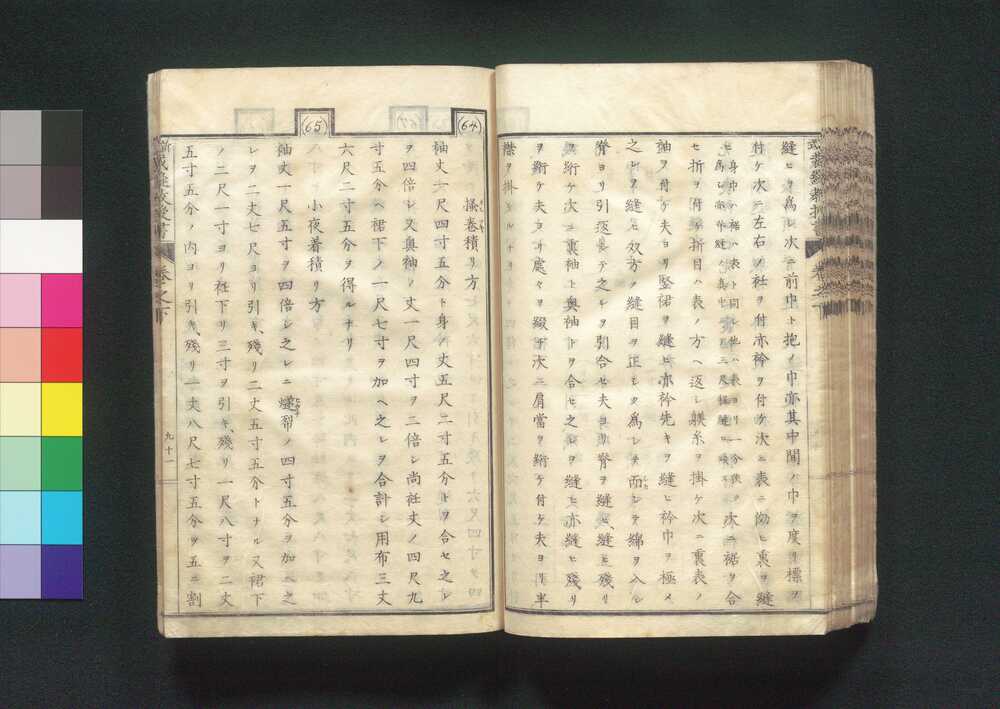 縫ヒヲ為シ次ニ前巾ト抱ノ巾亦其中間ノ巾ヲ度リ標ヲ
付ケ次ニ左右ノ衽ヲ付亦衿ヲ付ケ次ニ表ニ裏ヲ縫
ヒ 次ニ裾ヲ合
セ折ヲ付ケ折目ハ表ノ方ヘ返シ躾糸ヲ掛ケ次ニ裏表ノ
紬ヲ付ケ夫ヨリ竪裙ヲ縫ヒ亦衿先キヲ縫ヒ衿巾ヲ極メ
之レヲ縫ヒ双方ノ縫目ヲ正シク為シ而シテ綿ヲ入レ
脊ヨリ引返シテ之レヲ引合セ夫ヨリ脊ヲ縫ヒ縫ヒ残リ
ヲ絎ケ次ニ裏袖ト奥袖トヲ合セ之レヲ縫ヒ亦縫ヒ残リ
ヲ絎ケ夫ヨリ處々ヲ綴ヂ次ニ肩當ヲ絎ケ付ケ夫ヨリ半
襟ヲ掛ルナリ
(64)
掻巻積リ方
袖丈一尺四寸五分ト身ノ丈五尺二寸五分トヲ合セ之レ
ヲ四倍シ又奥袖ノ丈一尺四寸ヲ二倍シ尚衽丈ノ四尺九
寸五分ヘ裙下ノ一尺七寸ヲ加ヘ之レヲ合計シ用布三丈
六尺二寸五分ヲ得ルナリ
(65)
小夜着積リ方
袖丈一尺五寸ヲ四倍シ之レニ ノ四寸五分ヲ加ヘ之
レヲ二丈七尺ヨリ引キ、残リ二丈五寸五分トナル又裙下
ノ二尺一寸ヨリ衽下リ三寸ヲ引キ、残リ一尺八寸ヲ二丈
五寸五分ノ内ヨリ引キ、残リ一丈八尺七寸五分ヲ五ニ割
巻之下
九十一